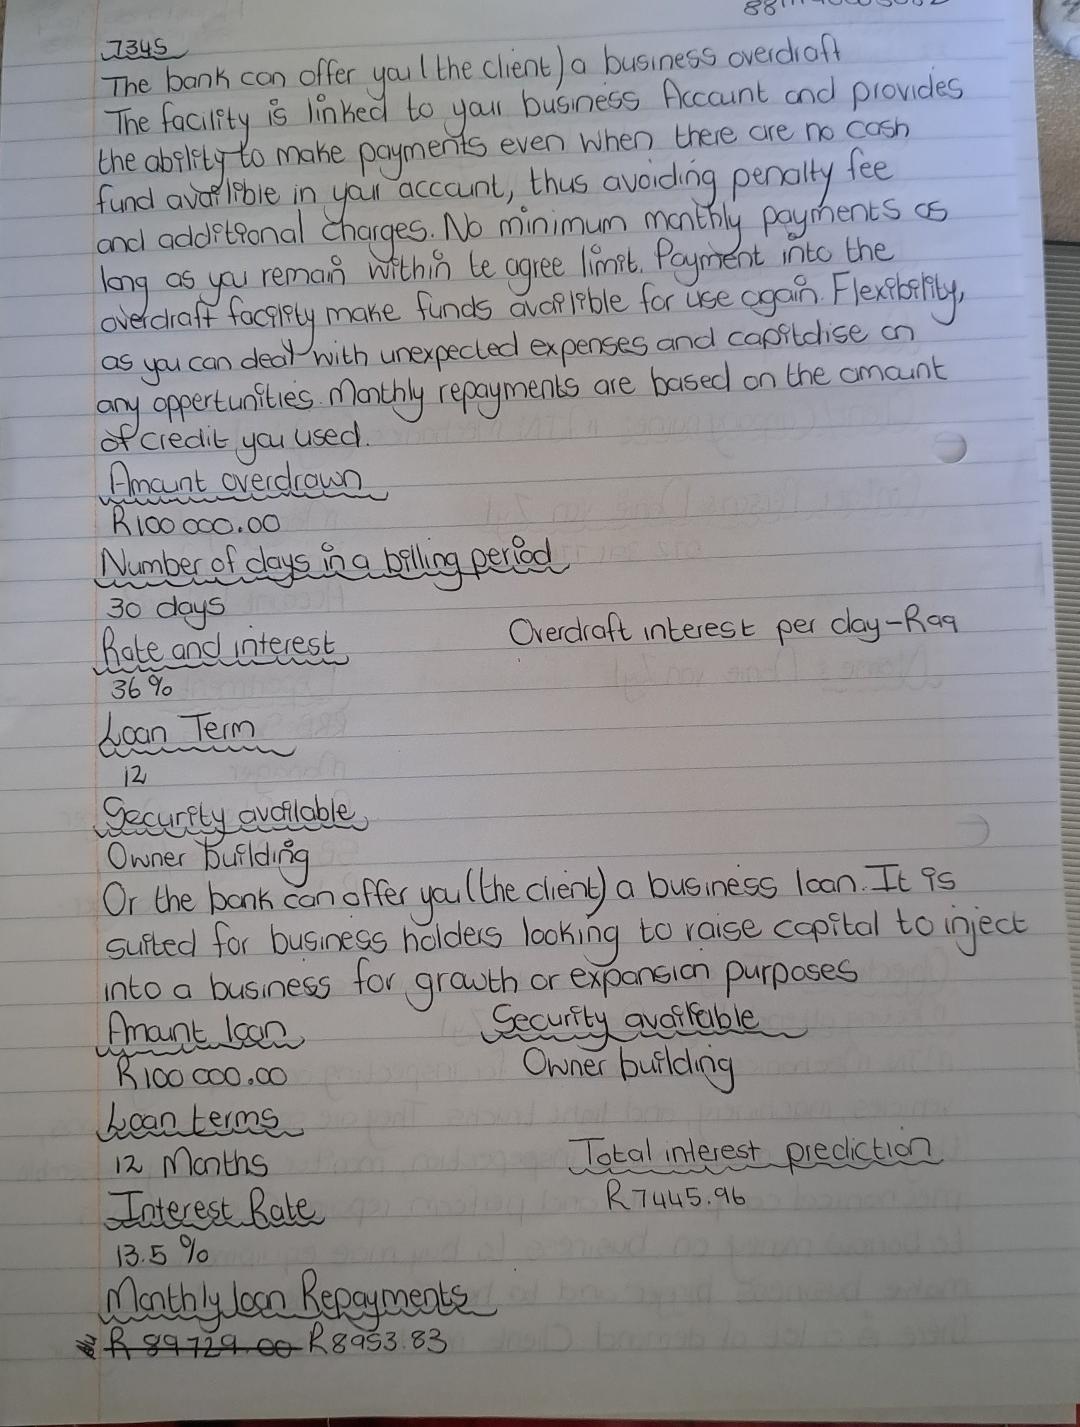 7345
The bank can offer you (the client) a business overdraft
The facility is linked to your business Account and provides
the ability to make payments even when there are no cash
fund availible in your account, thus avoiding penalty fee
and additional charges. No minimum monthly payments as
long as you remain within te agree limit. Payment into the
overdraft facility make funds availible for use again. Flexibility,
as you can deal with unexpected expenses and capitalise on
any oppertunities. Monthly repayments are based on the amount
of credit you used.
Amount overdrawn
R100 000.00
Number of days in a billing period
30 days
Overdraft interest per day-R99
Rate and interest
36%
Loan Term
12
Security available
Owner building
Or the bank can offer you (the client) a business loan. It is
suited for business holders looking to raise capital to inject
into a business for growth or expansion purposes
Amount loan Security available
R100 000.00 Owner building
Loan terms
12 Months Total interest prediction
R7445.96
Interest Rate
13.5%
Monthly loan Repayments
R 89729.00 R8953.83